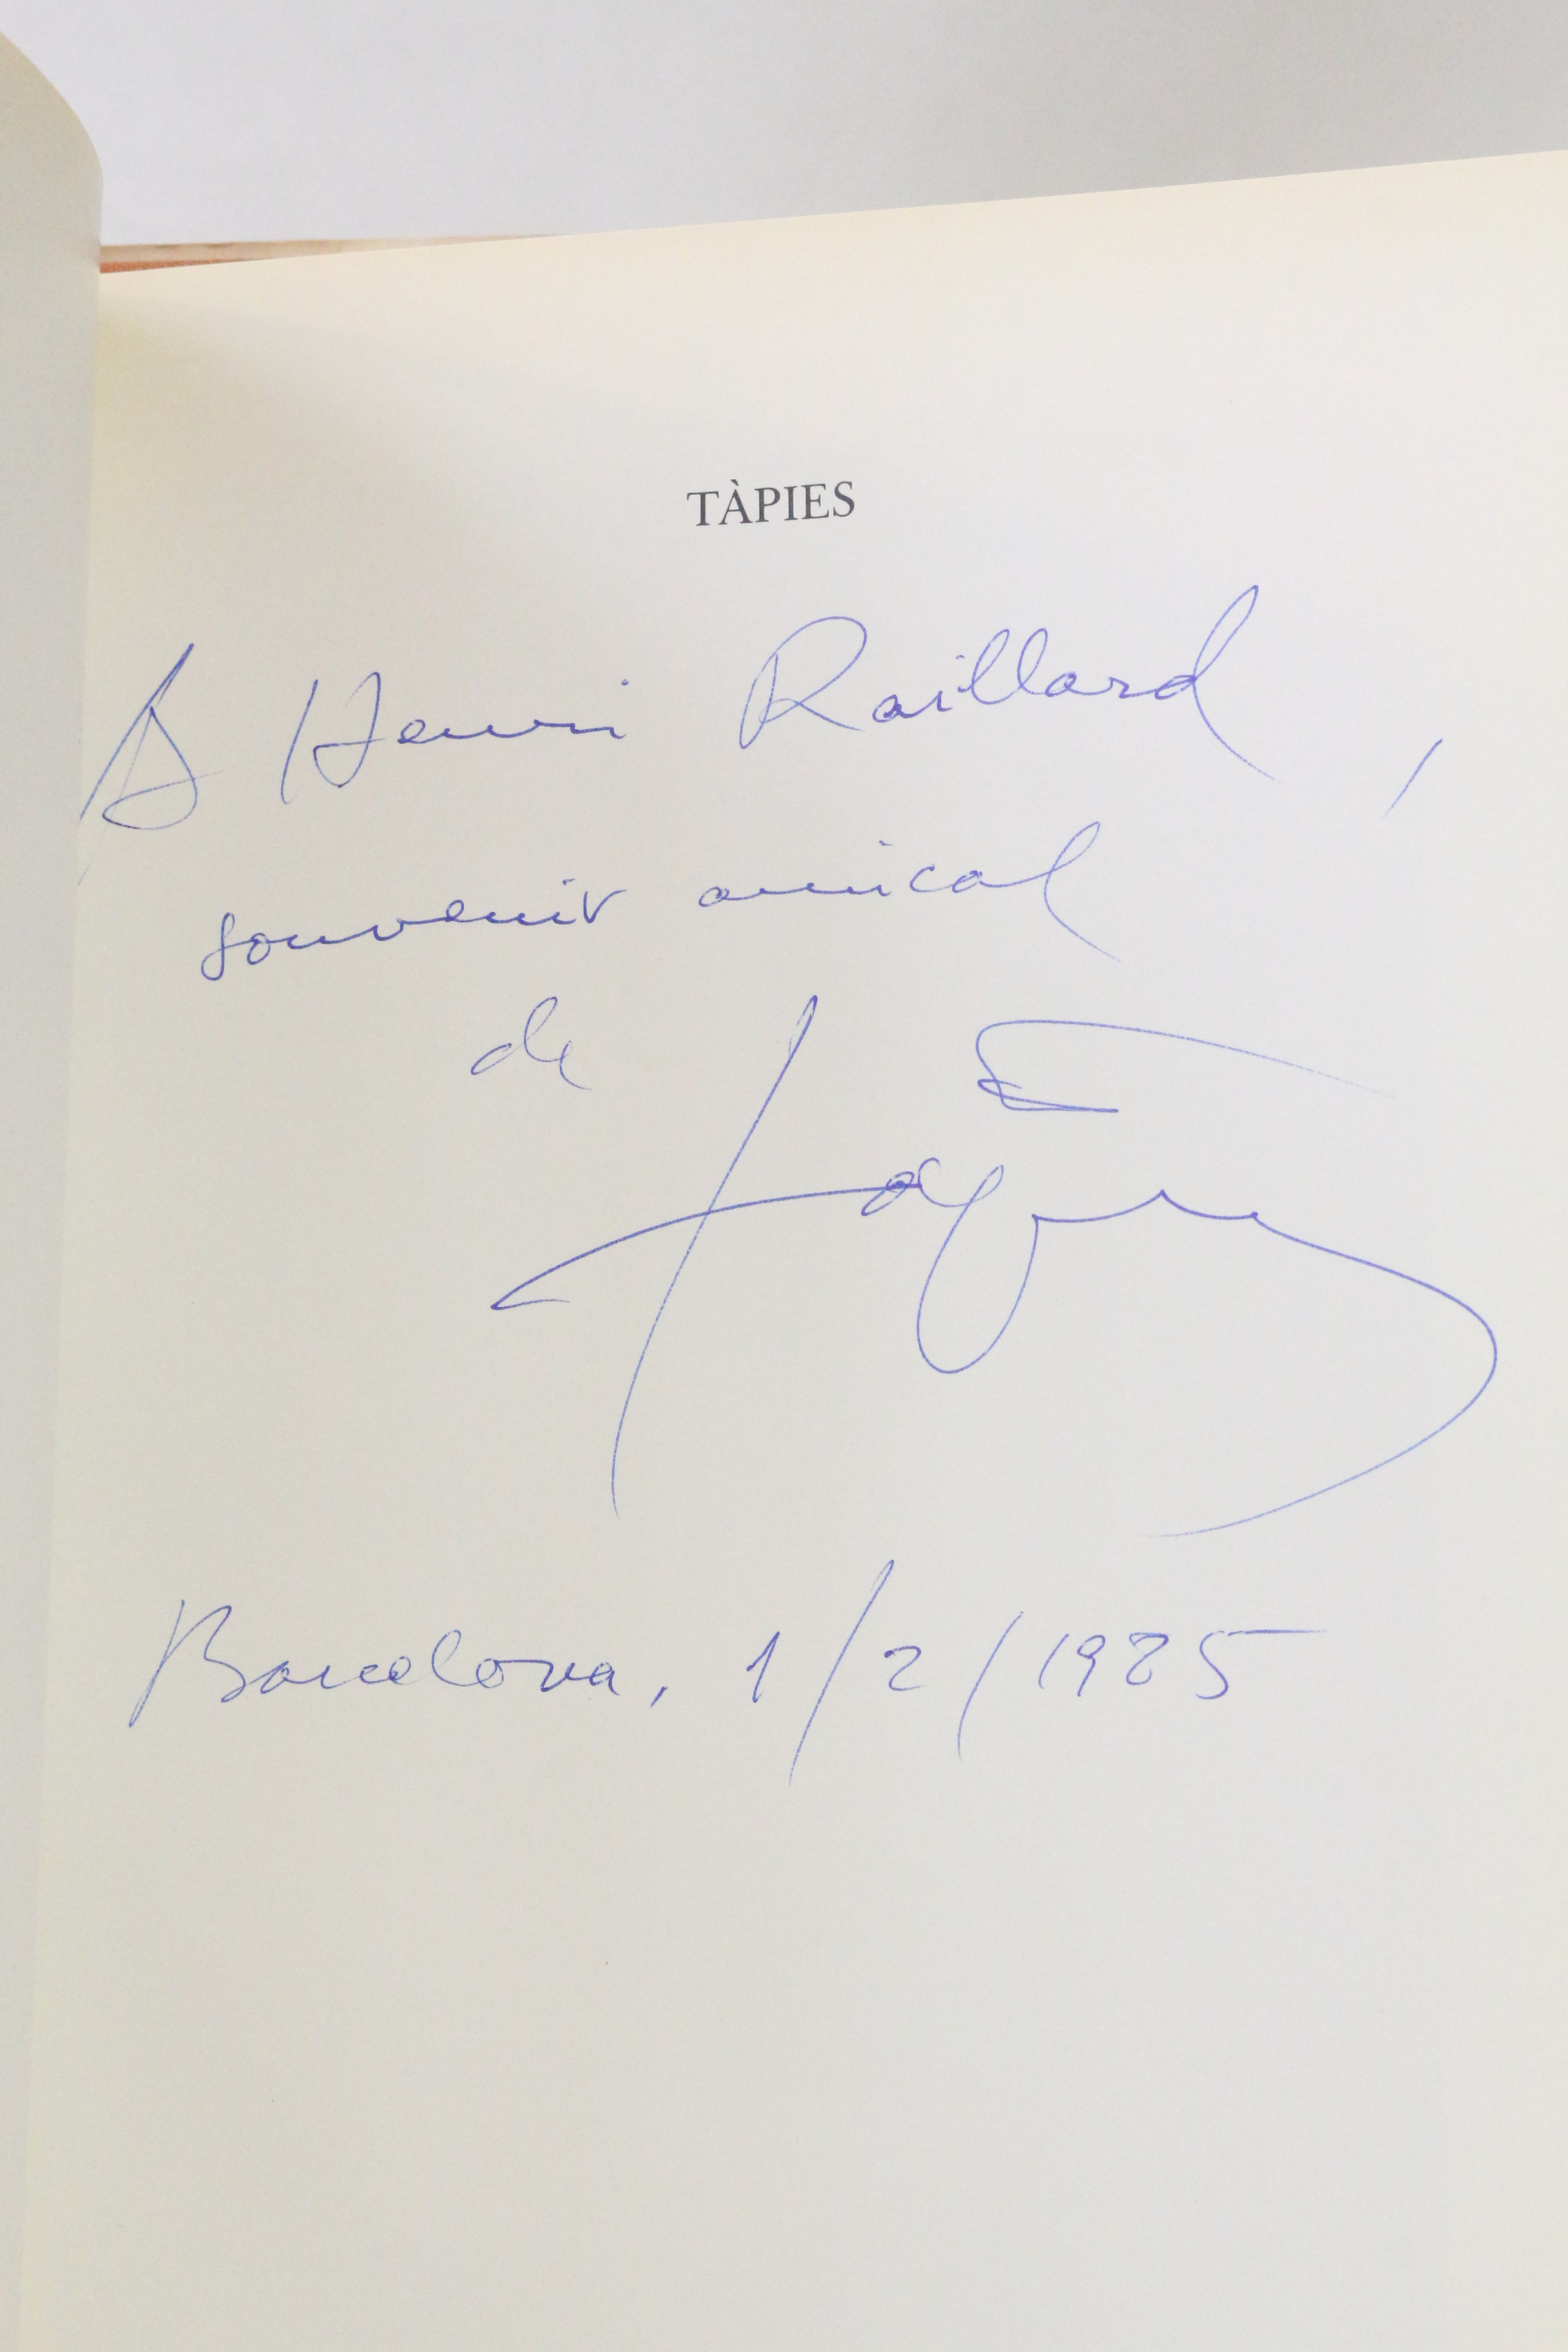 TÀPIES
A Henri Raillard,
souvenir amical
de Tàpies
Barcelona, 1/2/1985